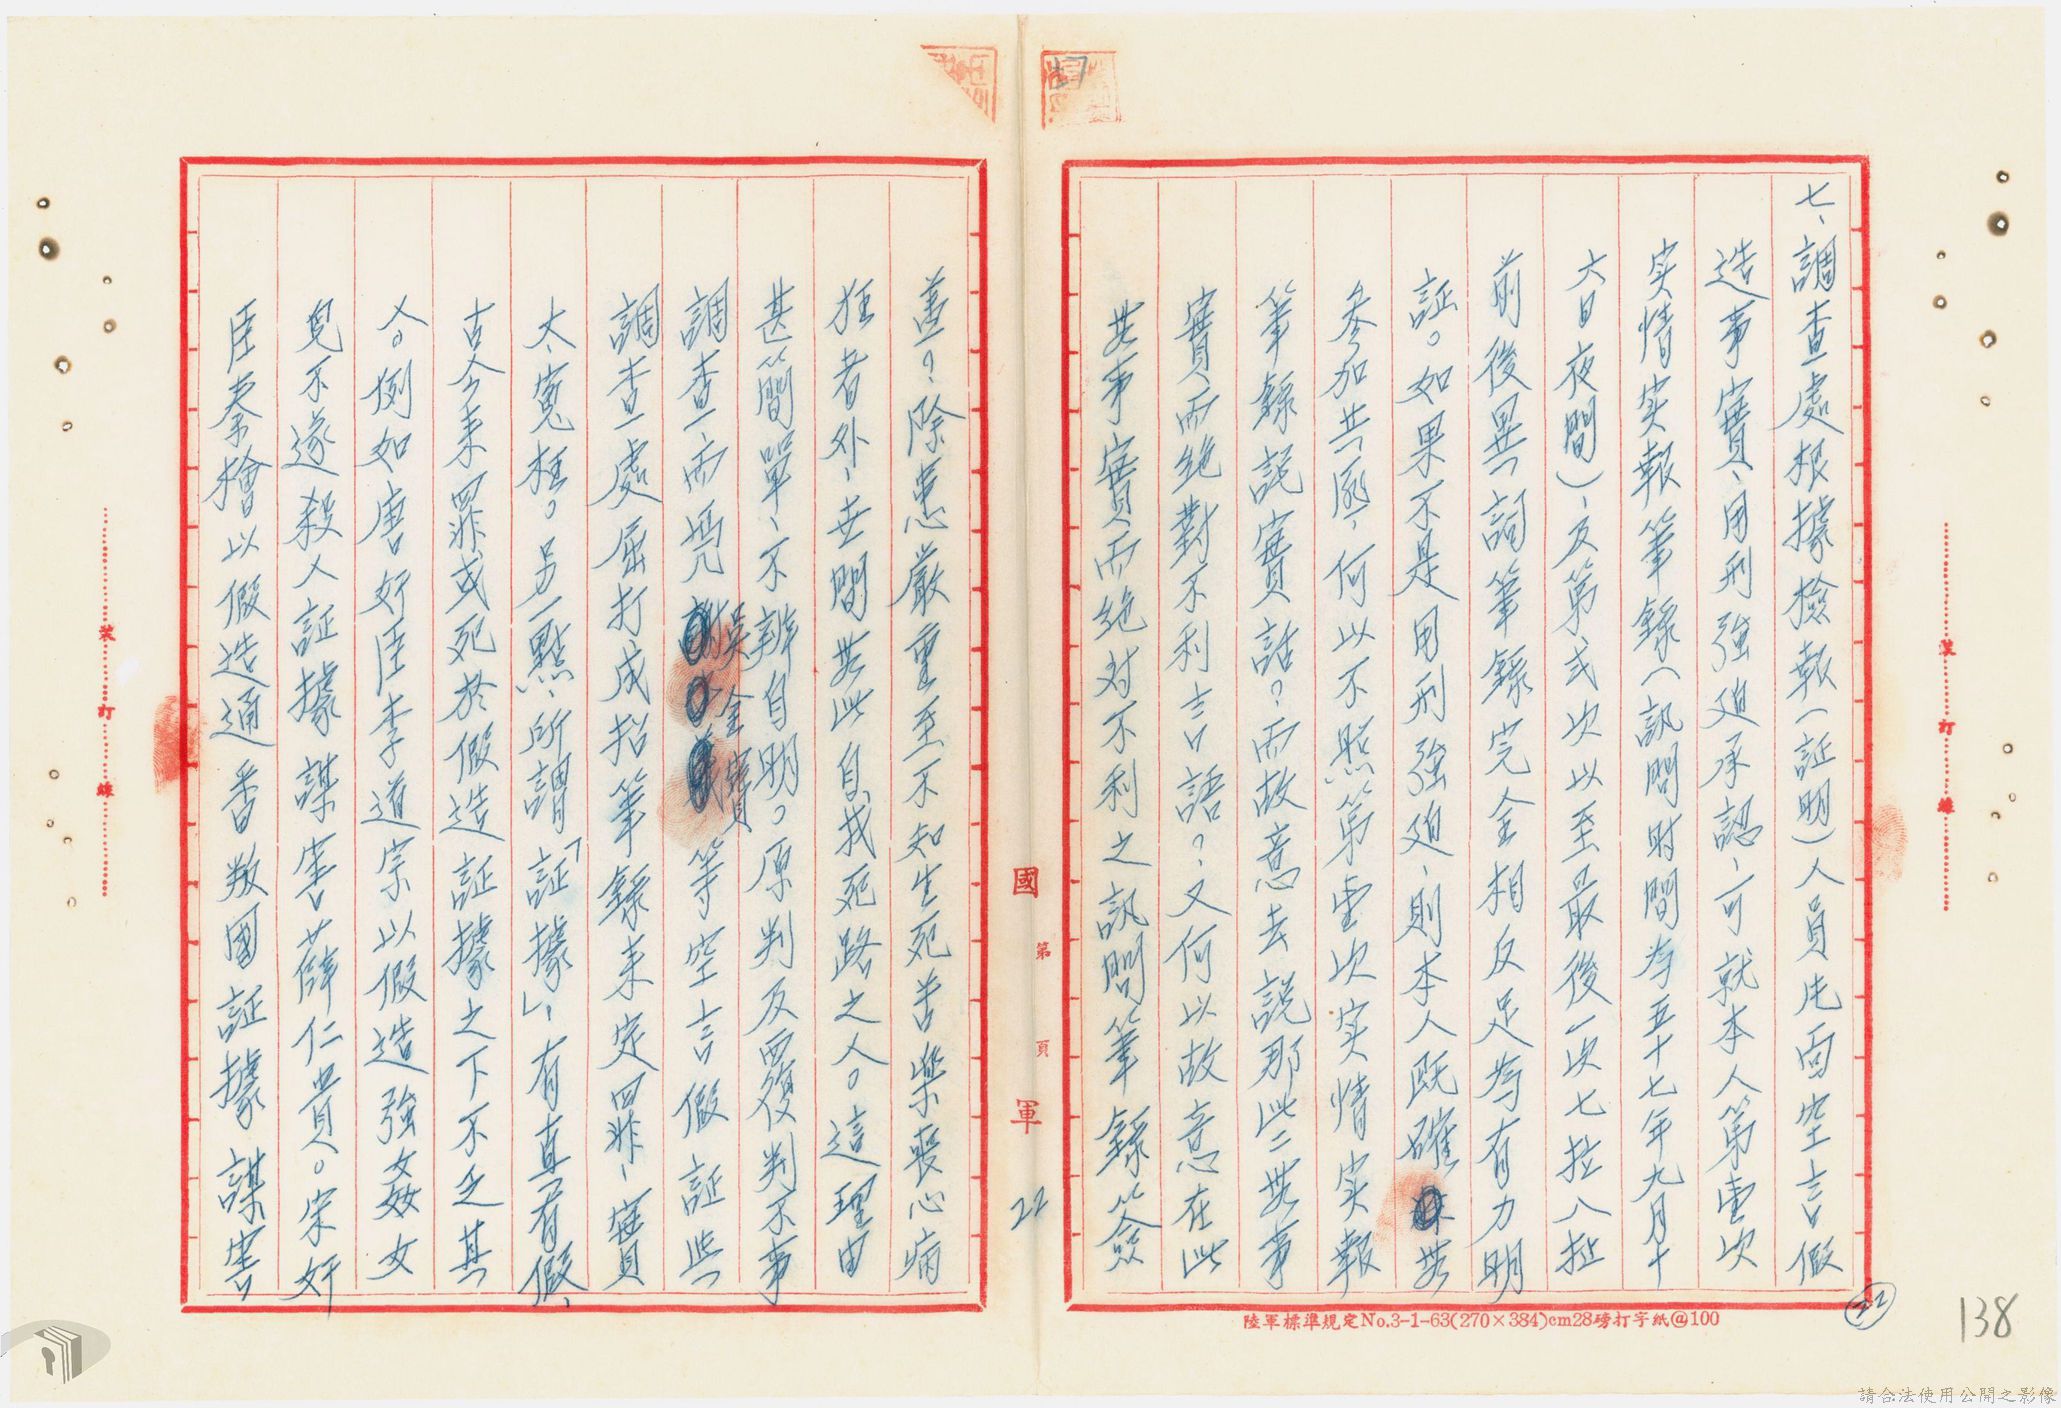 七、調查處根據檢報(証明)人員片面空言假
造事實、用刑強迫承認、可就本人第壹次
实情实報筆錄(訊問時間為五十七年九月十
六日夜間)、及第弍次以至最後一次七拉八扯
前後異詞筆錄完全相反足為有力明
証。如果不是用刑強迫、則本人既確無
參加共匪、何以不照第壹次实情实報
筆錄説實話?而故意去說那些二無事
實而绝對不利言語?、又何以故意在此
無事實而绝对不利之訊問筆錄簽
蓋?、除患嚴重至不知生死苦樂喪心病
狂者外、世間無此自找死路之人。這理由
甚簡單、不辨自明。原判及覆判不事
調查、而憑吳金實等空言假証、些
調查處屈打成招筆錄来定罪、實
太寃枉。另一點、所謂「証據」、有真有假、
古今来罪或死於假造証據之下不乏其
人。例如唐奸臣李道宗以假造強姦女
兒不遂殺人証據謀害薛仁貴。宋奸
臣秦檜以假造通番叛國証據謀害
國 第 頁 軍
22
17
22
138
裝 訂 線
裝 訂 線
陸軍標準規定No.3-1-63(270×384)cm28磅打字紙@100
請合法使用公開之影像